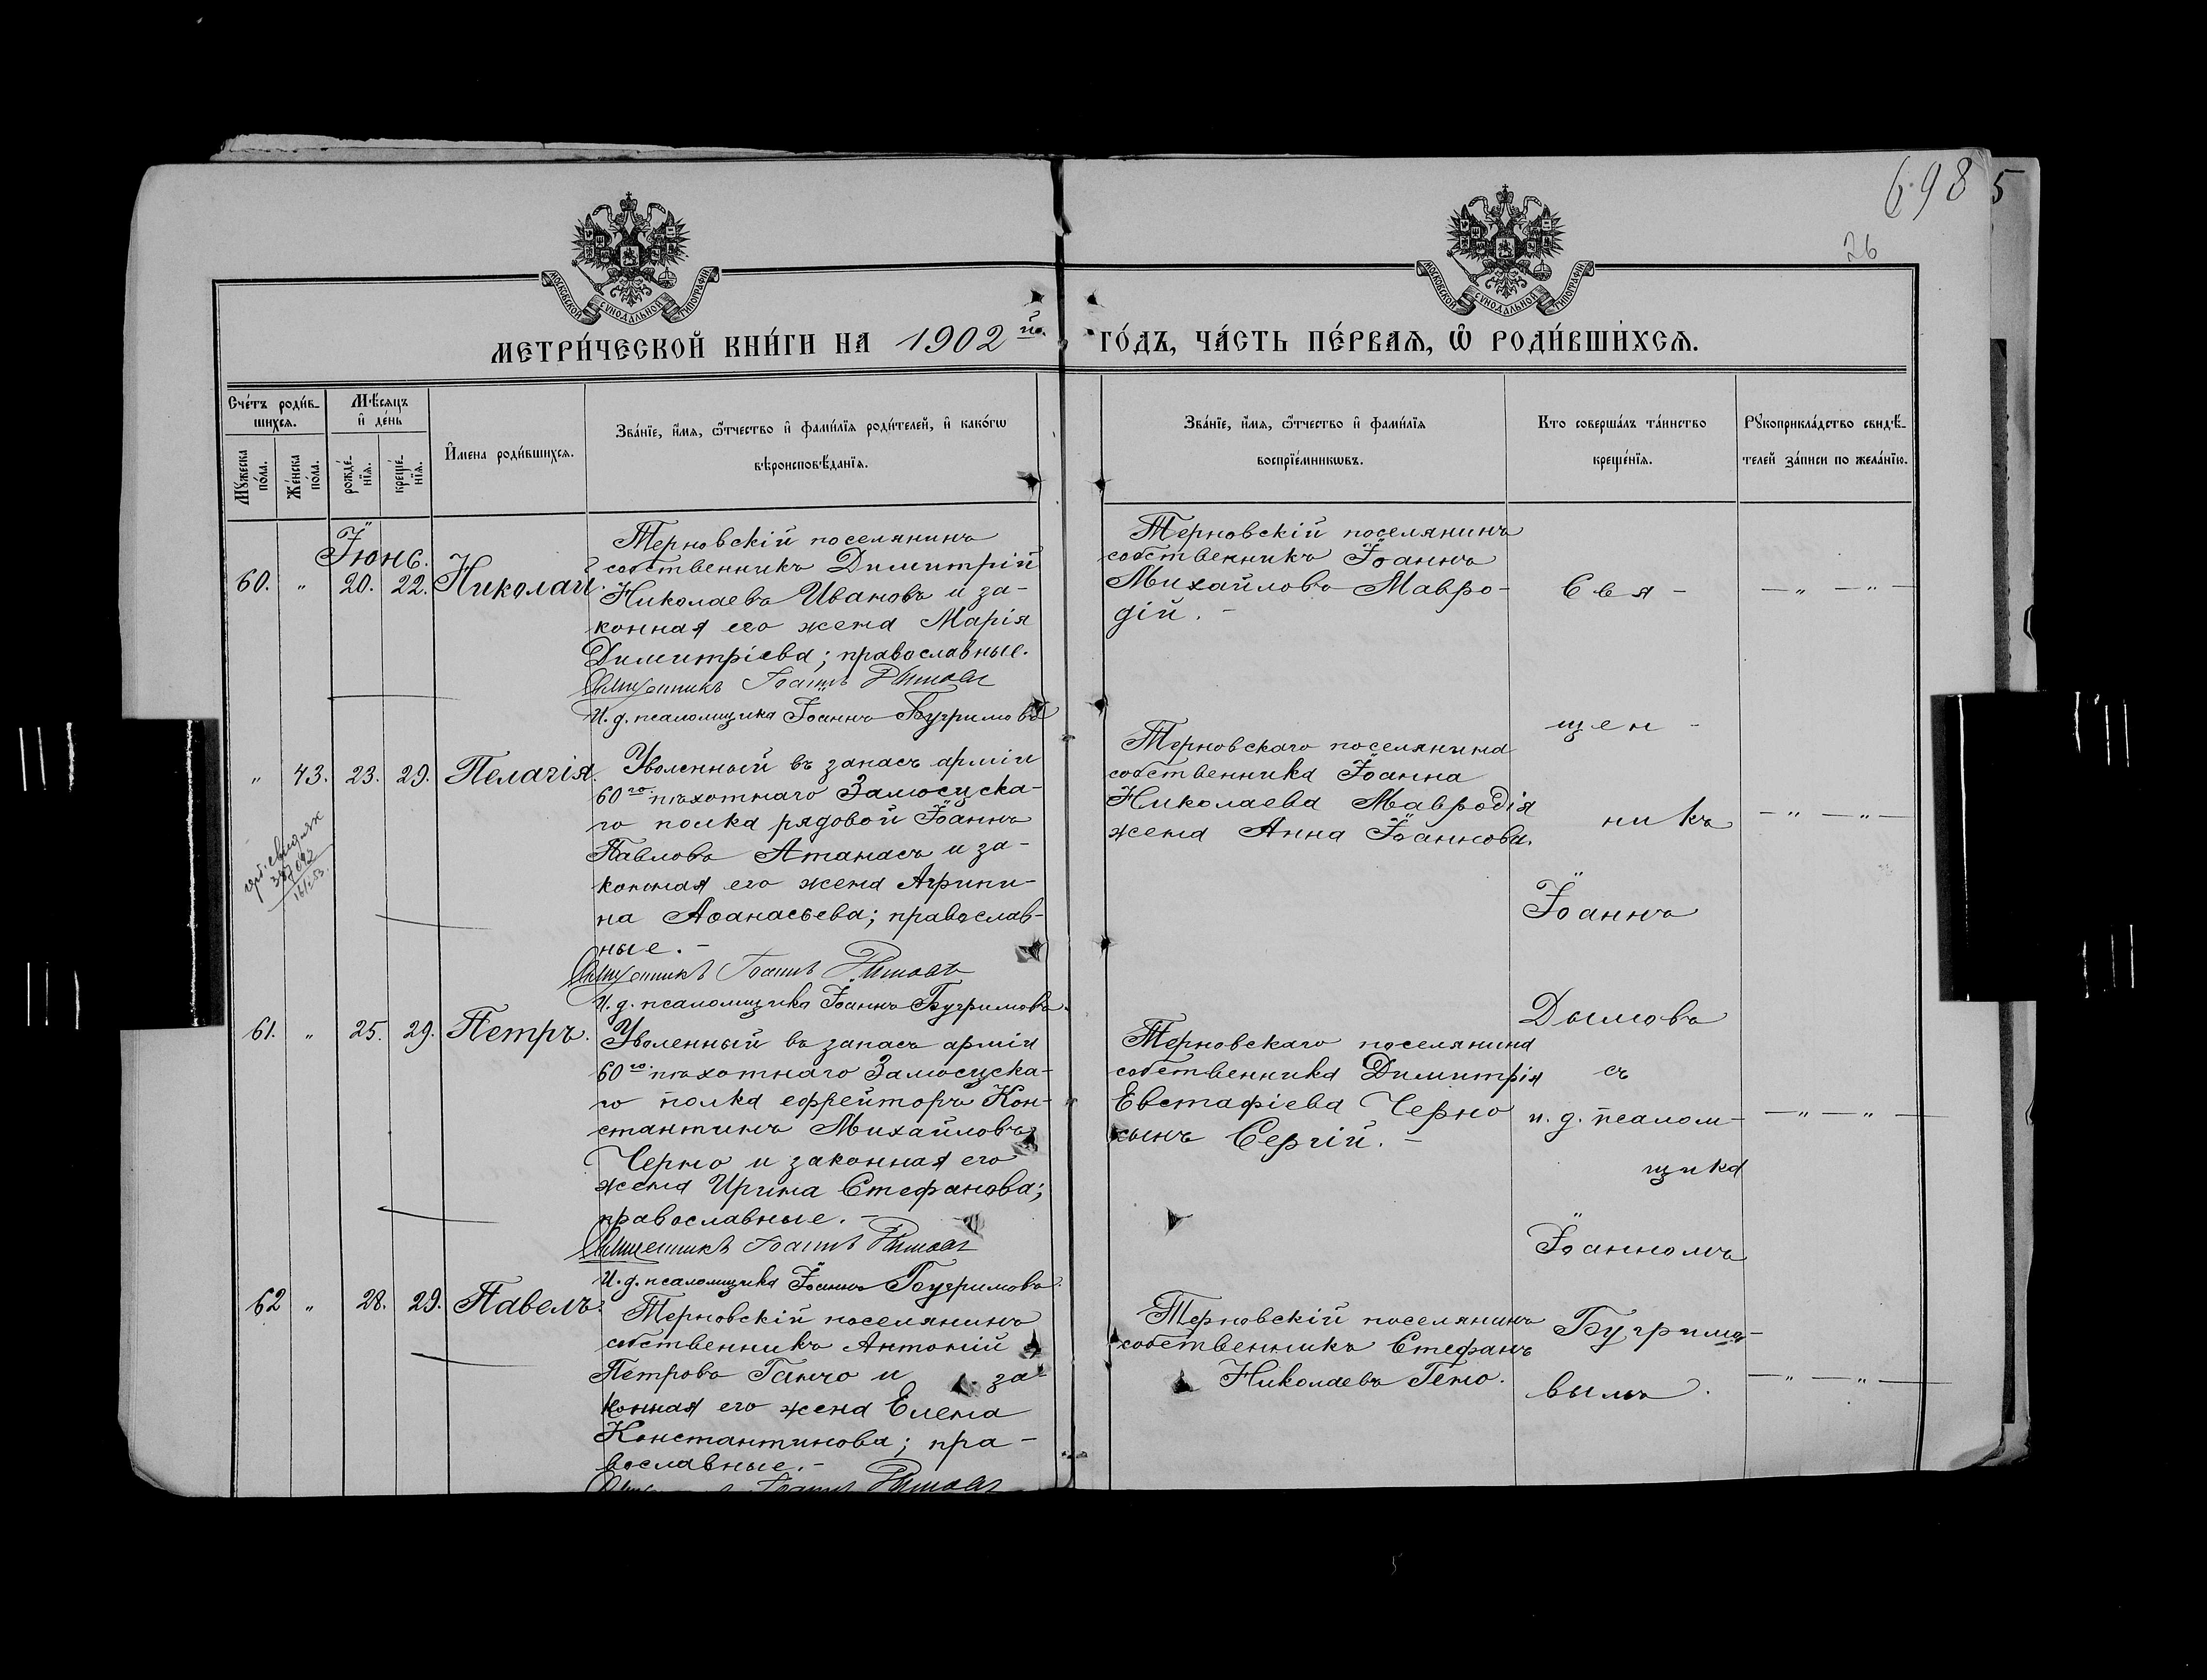 698
5
26
МОСКОВСКОЙ СѴНОДАЛЬНОЙ ТИПОГРАФІИ
МОСКОВСКОЙ СѴНОДАЛЬНОЙ ТИПОГРАФІИ
МЕТРИ́ЧЕСКОЙ КНИ́ГИ НА 1902й
ГО́ДЪ, ЧА́СТЬ ПЕ́РВАѦ, Ѡ҆ РОДИ́ВШИХСѦ.
Сче́тъ роди́в-
шихсѧ.
Мꙋ́жеска по́ла.
Же́нска по́ла.
Мѣ́сѧцъ
и҆ де́нь
рожде́-нїѧ.
креще́-нїѧ.
И҆мена роди́вшихсѧ.
Зва́нїе, и҆́мѧ, ѻ҆́тчество и҆ фами́лїѧ роди́телей, и҆ како́гѡ
вѣроисповѣ́данїѧ.
Зва́нїе, и҆́мѧ, ѻ҆́тчество и҆ фами́лїѧ
воспрїе́мникѡвъ.
Кто соверша́лъ та́инство
креще́нїѧ.
Рꙋкоприкла́дство свидѣ́-
телей за́писи по жела́нїю.
Іюнь.
60. " 20. 22. Николай.
Терновскій поселянинъ
собственникъ Димитрій
Николаевъ Ивановъ и за-
конная его жена Марія
Димитріева; православные.
Священникъ Іоаннъ Дымовъ
И. д. псаломщика Іоаннъ Бугримовъ
Терновскій поселянинъ
собственникъ Іоаннъ
Михайловъ Мавро-
дій. -
— " — " —
" 43. 23. 29. Пелагія.
Уволенный въ запасъ арміи
60го пѣхотнаго Замосцска-
го полка рядовой Іоаннъ
Павловъ Атанасъ и за-
конная его жена Агрипи-
на Аѳанасьева; православ-
ные. -
Священникъ Іоаннъ Дымовъ
И. д. псаломщика Іоаннъ Бугримовъ.
Терновскаго поселянина
собственника Іоанна
Николаева Мавродія
жена Анна Іоаннова.
— " — " —
61. " 25. 29. Петръ.
Уволенный въ запасъ арміи
60го пѣхотнаго Замосцска-
го полка ефрейторъ Кон-
стантинъ Михайловъ
Черно и законная его
жена Ирина Стефанова;
православные. -
Священникъ Іоаннъ Дымовъ
И. д. псаломщика Іоаннъ Бугримовъ.
Терновскаго поселянина
собственника Димитрія
Евстафіева Черно
сынъ Сергій. -
— " — " —
62 " 28. 29. Павелъ.
Терновскій поселянинъ
собственникъ Антоній
Петровъ Ганчо и за-
конная его жена Елена
Константинова; пра-
вославные. -
Священникъ Іоаннъ Дымовъ
Терновскій поселянинъ
собственникъ Стефанъ
Николаевъ Гено.
— " — " —
Свя-
щен-
никъ
Іоаннъ
Дымовъ
съ
и. д. псалом-
щика
Іоанномъ
Бугримо-
вымъ.